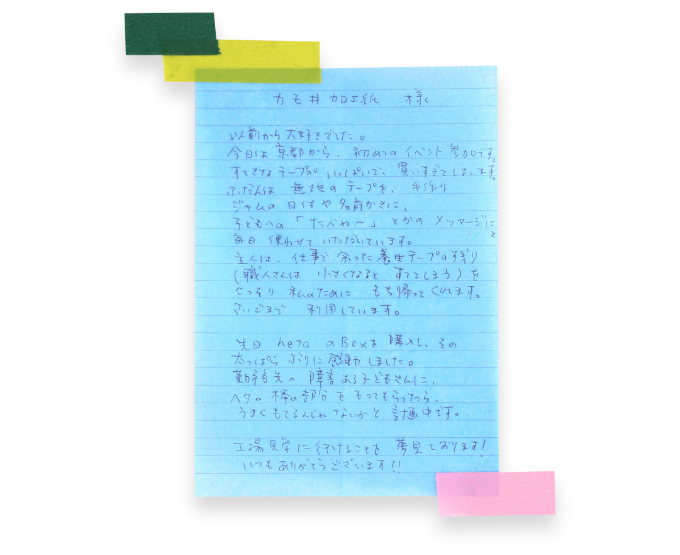 カモ井加工紙 様
以前から大好きでした。
今日は京都から、初めてのイベント参加です。
すてきなテープがいっぱいで、買いすぎてしまいます。
ふだんは 無地のテープを、手作り
ジャムの日付や名前かきに、
子どもへの「たべねー」とかの メッセージにと
毎日 使わせて いただいています。
主人は、仕事で余った養生テープの残り
(職人さんは 小さくなると すててしまう)を
こっそり 私のために もち帰ってくれます。
さいごまで 利用しています。
先日 hetaのBoxを購入し、その
太っぱらぶりに感動しました。
勤務先の 障害ある子どもさんに、
ヘタの 棒の部分をもってもらったら、
うまくもてるんじゃないかと 計画中です。
工場見学に行けることを 夢見ております!
いつもありがとうございます!!